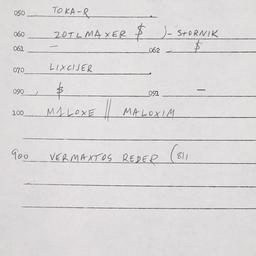 050 TOKA-R
060 ZOTLMAXER $ )- STORNIK
061 - 062 - $
070 LIXCIJER
090 $ 091 -
100 M1LOXE || MALOXIM
900 VERMAXTOS REDER (811